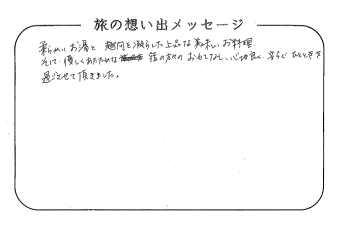 旅の想い出メッセージ
柔らかいお湯と 趣向を凝らした上品な美味しいお料理
そして、優しくあたたかな 宿の方々のおもてなし、心地良く、安らぐひとときを
過ごさせて頂きました。